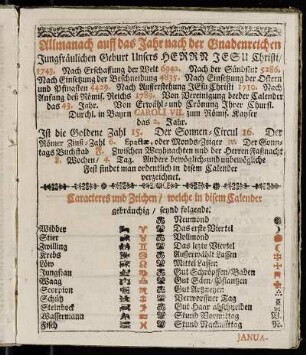 Allmanach auff das Jahr nach der Gnadenreichen
Jungfräulichen Geburt Unsers HERRN JESU Christi/
1743. Nach Erschaffung der Welt 6942. Nach der Sündflut 5286.
Nach Einsetzung der Beschneidung 4835. Nach Einsetzung der Ostern
und Pfingsten 4429. Nach Aufferstehung JEsu Christi 1710. Nach
Anfang des Römis. Reichs 2789. Von Vereinigung beeder Calender
das 43. Jahr. Von Erwähl- und Crönung Ihrer Churfl.
Durchl. in Bayen CAROLI VII. zum Römis. Kayser
das 2. Jahr.
Ist die Goldene Zahl 15. Der Sonnen-Circul 16. Der
Römer Zins-Zahl 6. Epactæ, oder Monds-Zeiger Der Sonn-
tags Buchstab F. Zwischen Weyhnachten und der Herren Faßnacht
8. Wochen/ 4. Tag. Andere bewöglich und unbewögliche
Fest findet man ordentlich in disem Calender
verzeichnet.
Caracteres und Zeichen/ welche in disem Calender
gebräuchig/ seynd folgende.
Neumond
Widder Das erste Viertel
Stier Vollmond
Zwilling Das letzte Viertel
Krebs Außerwählt Lassen
Löw Mittel Lassen
Jungfrau Gut Schröpffen/Baden
Waag Gut Säen/Pflantzen
Scorpion Gut Artzneyen
Schütz Verworffner Tag
Steinbock Gut Haar abschneiden
Wassermann Stund Vormittag V.
Fisch Stund Nachmittag N.
JANUA-